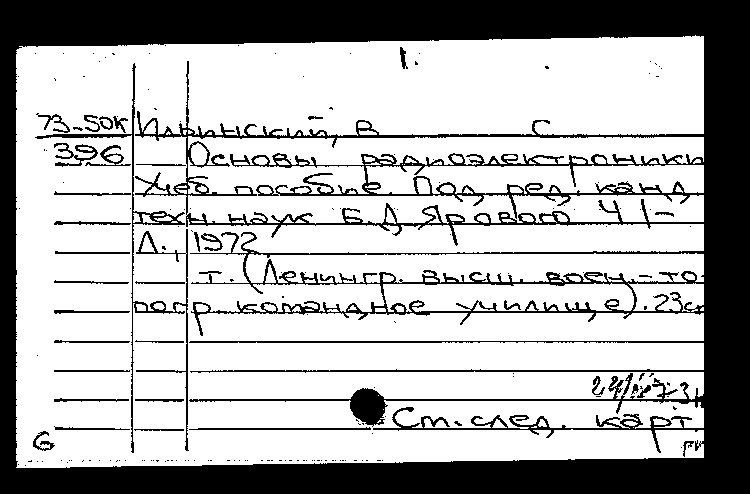 1.
73-50к Ильинский, В С
396 Основы радиоэлектроники
Учеб. пособие. Под ред. канд.
техн. наук Б.Д Ярового Ч 1-
Л., 1972
т. (Ленингр. высш. воен.-то-
погр. командное училище). 23см
Ст. след. карт.
G